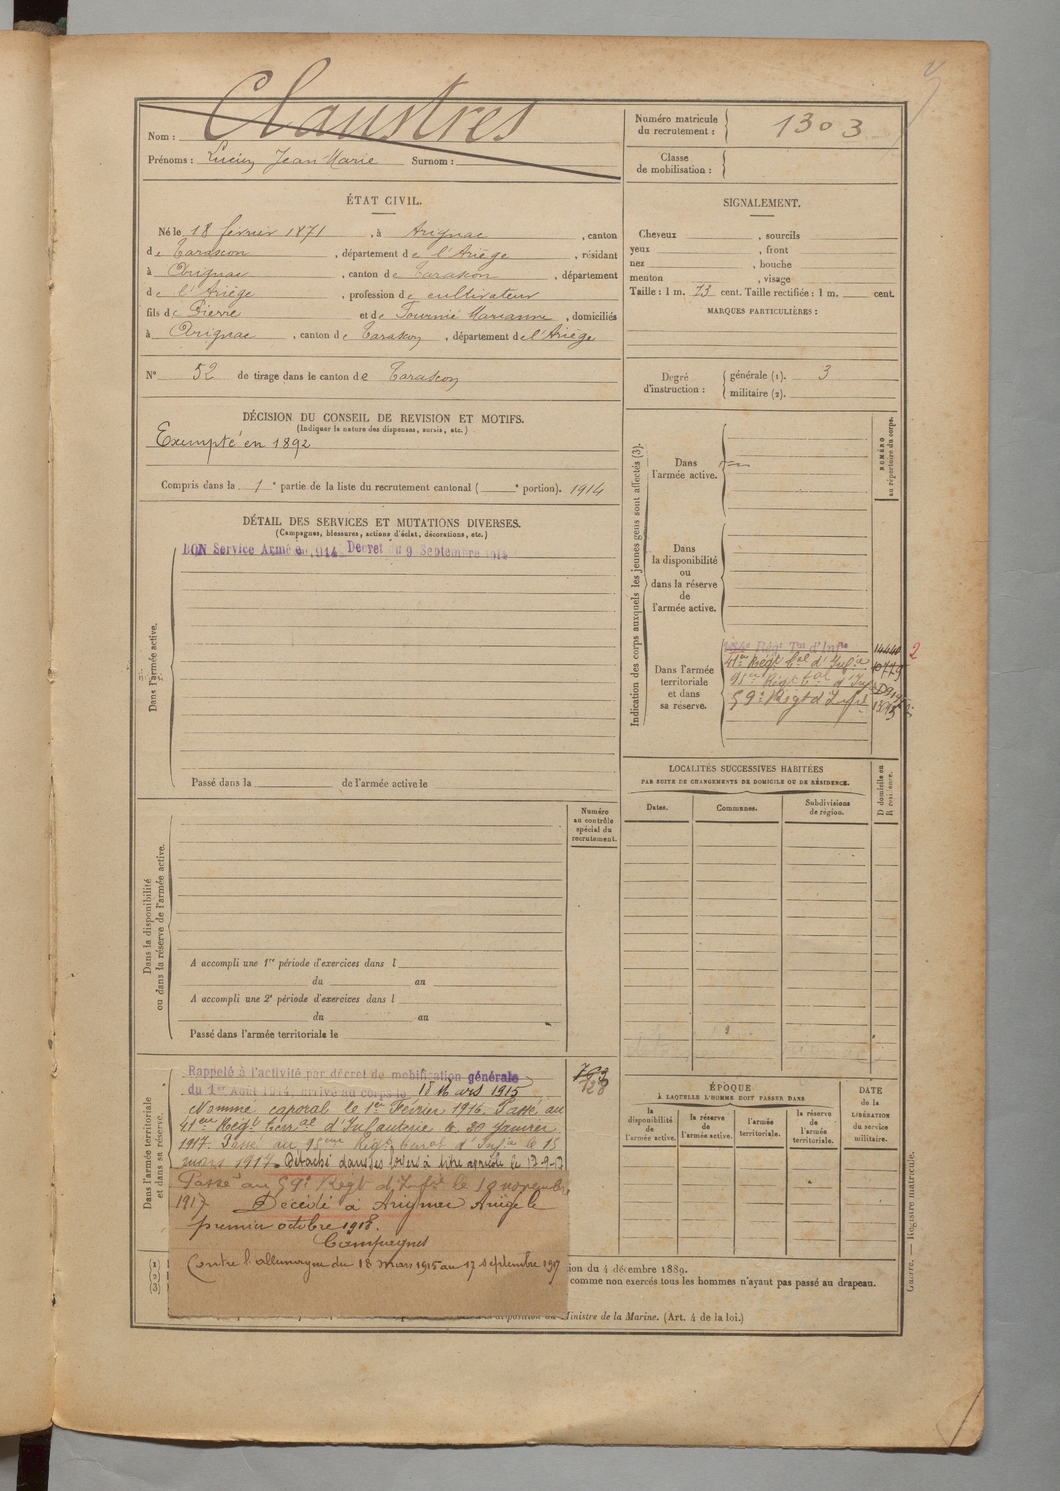 Nom : Claustres
Prénoms : Lucien Jean Marie Surnom :
Numéro matricule
du recrutement : 1303
Classe
de mobilisation :
ÉTAT CIVIL.
Né le 18 février 1871, à Arignac, canton
de Tarascon, département de l'Ariège, résidant
à Arignac, canton de Tarascon, département
de l'Ariège, profession de cultivateur
fils de Pierre et de Fournié Marianne, domiciliés
à Arignac, canton de Tarascon, département de l'Ariège
N° 52 de tirage dans le canton de Tarascon
SIGNALEMENT.
Cheveux , sourcils
yeux , front
nez , bouche
menton , visage
Taille : 1 m. 73 cent. Taille rectifiée : 1 m. cent.
MARQUES PARTICULIÈRES :
Degré
d'instruction :
générale (1). 3
militaire (2).
DÉCISION DU CONSEIL DE REVISION ET MOTIFS.
(Indiquer la nature des dispenses, sursis, etc.)
Exempté en 1892
Compris dans la 1e partie de la liste du recrutement cantonal ( e portion). 1914
DÉTAIL DES SERVICES ET MUTATIONS DIVERSES.
(Campagnes, blessures, actions d'éclat, décorations, etc.)
BON Service Armé en 1914 Décret du 9 Septembre 1914
Dans l'armée active.
Passé dans la de l'armée active le
Indication des corps auxquels les jeunes gens sont affectés (3).
NUMÉRO
au répertoire du corps.
Dans
l'armée active.
Dans
la disponibilité
ou
dans la réserve
de
l'armée active.
Dans l'armée
territoriale
et dans
sa réserve.
Régt Tal d'Infie
41e Régt tal d'Infie
95e Régt tal d'Inf
59e Régt d'Infie
2
LOCALITÉS SUCCESSIVES HABITÉES
PAR SUITE DE CHANGEMENTS DE DOMICILE OU DE RÉSIDENCE.
D domicile ou
R résidence.
Dates.
Communes.
Subdivisions
de région.
Numéro
au contrôle
spécial du
recrutement.
Dans la disponibilité
ou dans la réserve de l'armée active.
A accompli une 1re période d'exercices dans l
du au
A accompli une 2e période d'exercices dans l
du au
Passé dans l'armée territoriale le
Dans l'armée territoriale
et dans sa réserve.
Rappelé à l'activité par décret de mobilisation générale
du 1er Août 1914, arrivé au corps le 18 Mars 1915
128
Nommé caporal le 1er Février 1916. Passé au
41eme Régt terral d'Infanterie le 20 Janvier
1917. Passé au 95eme Régt terral d'Infie le 15
mars 1917. Détaché dans ses foyers à titre agricole le 17-9-17
Passé au 59e Régt d'Infie le 10 novembre
1917. Décédé à Arignac Ariège le
premier octobre 1918.
Campagnes
Contre l'allemagne du 18 mars 1915 au 17 septembre 1917
ÉPOQUE
À LAQUELLE L'HOMME DOIT PASSER DANS
la
disponibilité
de
l'armée active.
la réserve
de
l'armée active.
l'armée
territoriale.
la réserve
de
l'armée
territoriale.
DATE
de la
LIBÉRATION
du service
militaire.
ion du 4 décembre 1889.
comme non exercés tous les hommes n'ayant pas passé au drapeau.
Ministre de la Marine. (Art. 4 de la loi.)
Guerre. — Registre matricule.